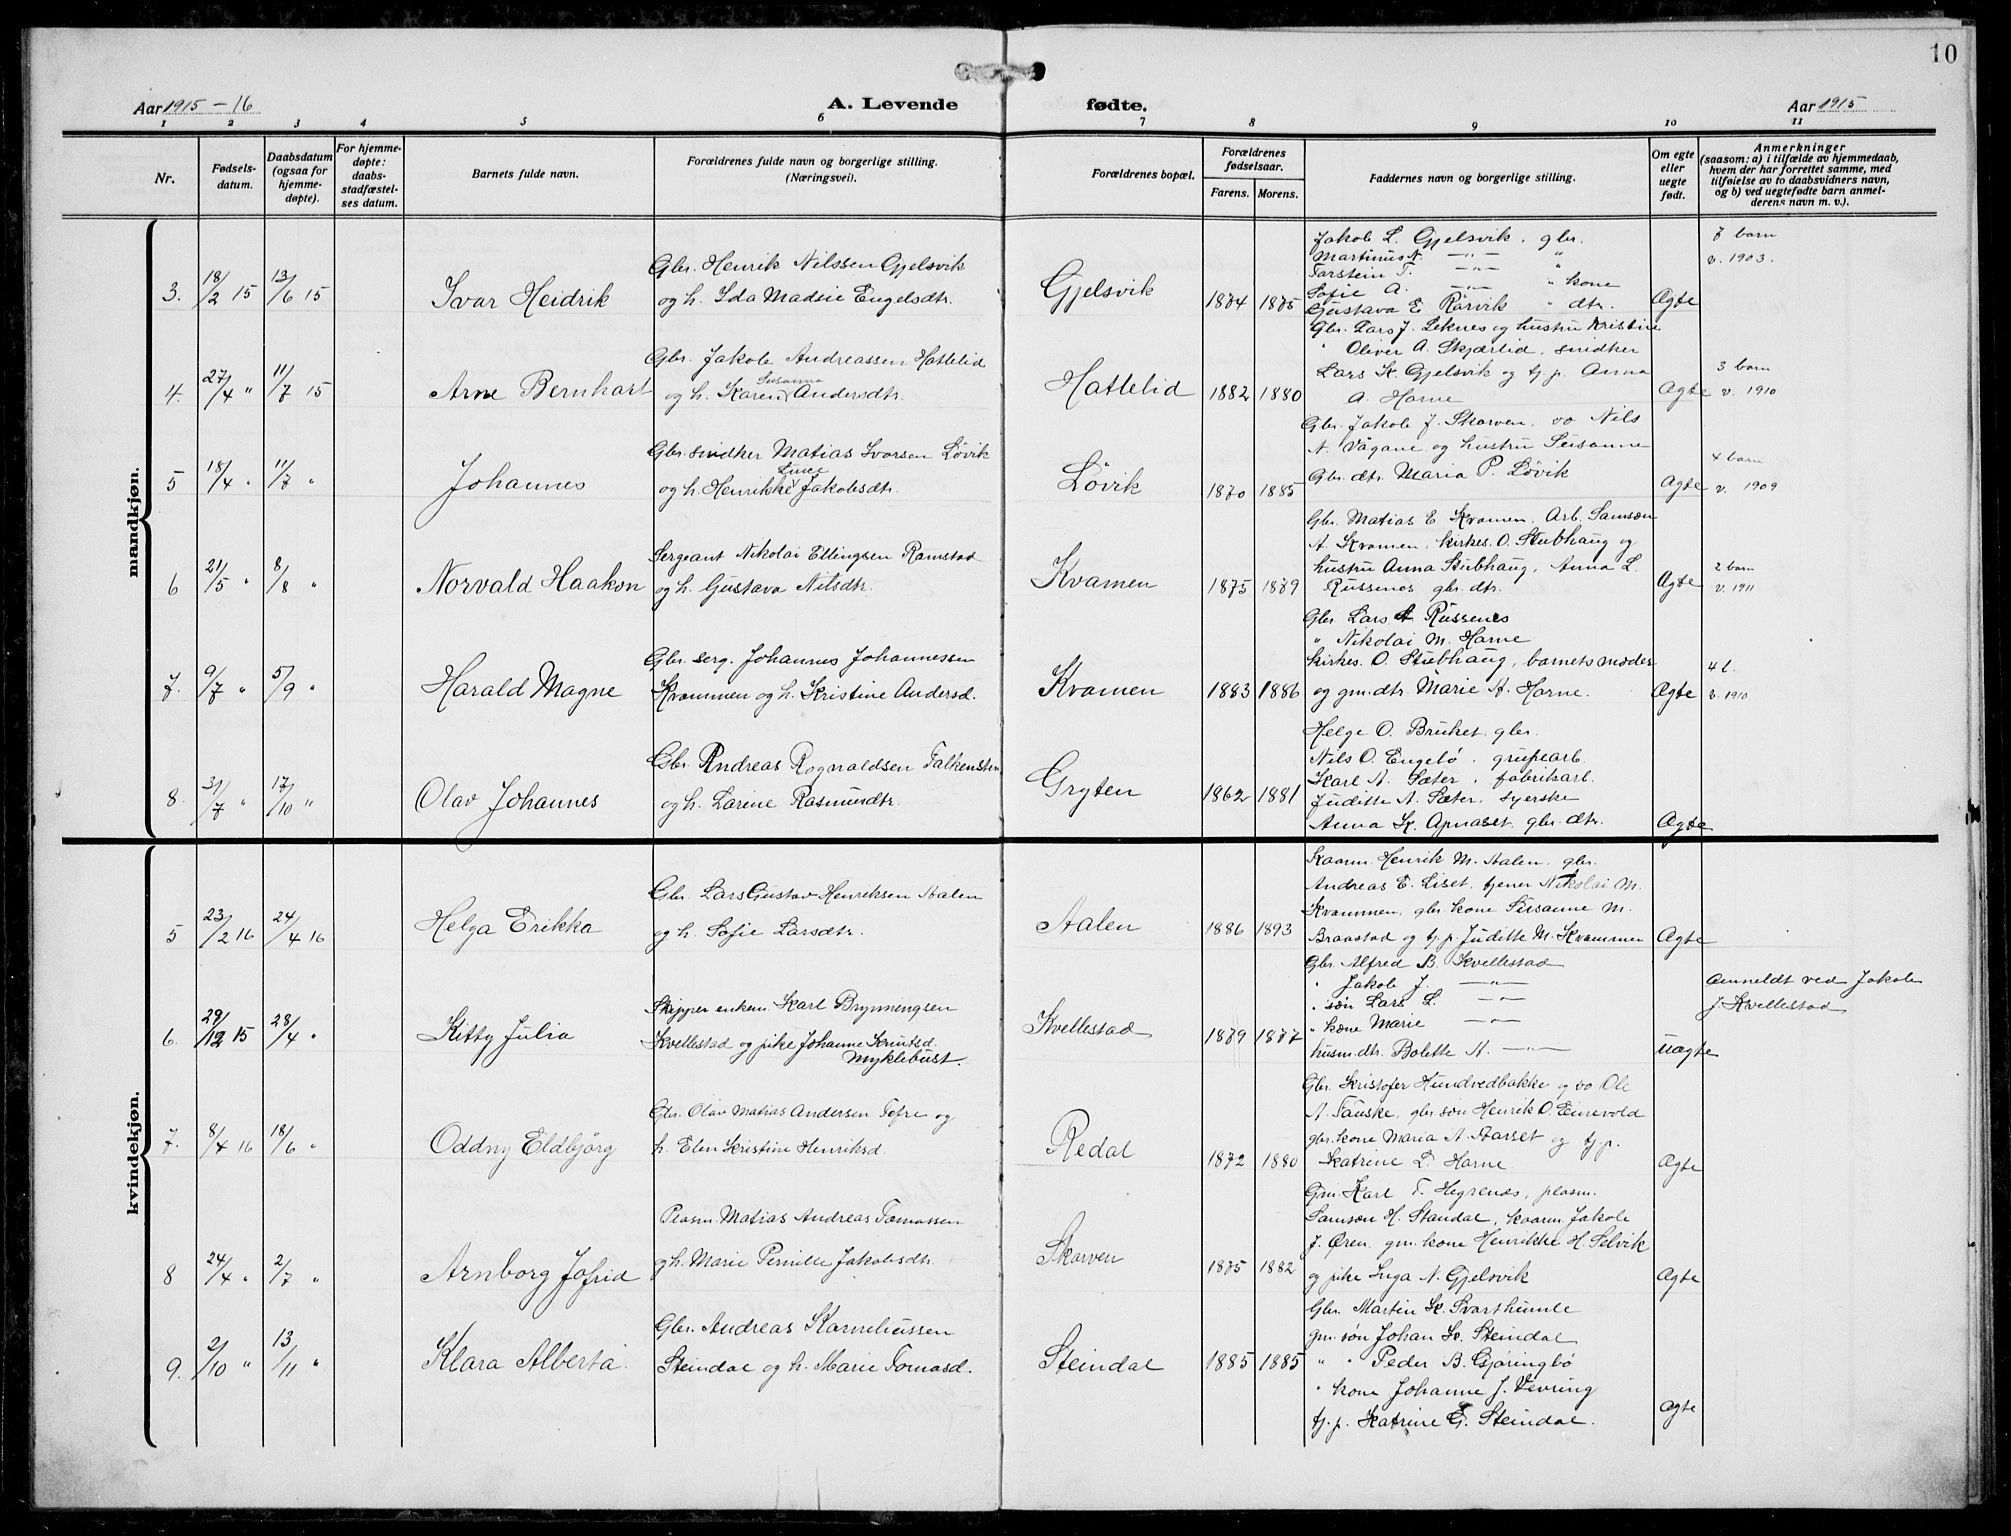 10
Aar 1915-16
A. Levende fødte.
Aar 1915
1 2 3 4 5 6 7 8 9 10 11
Nr.
Fødsels-
datum.
Daabsdatum
(ogsaa for
hjemme-
døpte).
For hjemme-
døpte:
daabs-
stadfæstel-
ses datum.
Barnets fulde navn.
Forældrenes fulde navn og borgerlige stilling.
(Næringsvei).
Forældrenes bopæl.
Forældrenes
fødselsaar.
Farens. Morens.
Faddernes navn og borgerlige stilling.
Om egte
eller
uegte
født.
Anmerkninger
(saasom: a) i tilfælde av hjemmedaab,
hvem der har forrettet samme, med
tilføielse av to daabsvidners navn,
og b) ved uegtefødte barn anmel-
derens navn m. v.).
mandkjøn.
3. 18/2 15 13/6 15
Ivar Heidrik
Gbr. Henrik Nilssen Gjelsvik
og h. Ida Madsie Engelsdtr.
Gjelsvik
1874 1875
Jakob L. Gjelsvik, gbr.
Martinus N. —"— "
Torstein T. —"— "
Sofie A. —"— " kone
Gustava E Rørvik " dtr.
Ægte
7 barn
v. 1903.
4. 27/4 " 11/7 15
Arne Bernhart
Gbr. Jakob Andreassen Hattelid
Susanna
og h. Karen Andersdtr.
Hattelid
1882 1880
Gbr. Lars J. Leknes og hustru Kristine
" Oliver A. Skjærlid, snidker
Lars K. Gjelsvik og tj.p. Anna
A. Horne
Ægte
3 barn
v. 1910
5 18/4 " 11/7 "
Johannes
Gbr. snidker Matias Ivarsen Løvik
og h. Henrikke Jakobsdtr.
Løvik
1870 1885
Gbr. Jakob J. Skorven, do Nils
N. Vågane og hustru Susanne
Gbr. dtr. Maria P. Løvik
Ægte
4 barn
v. 1909
6 21/5 " 8/8 "
Norvald Haakon
Sergeant Nikolai Ellingsen Ramstad
og h. Gustava Nilsdtr.
Kvamen
1875 1879
Gbr. Matias E Kvamen, Arb. Samson
A. Kvamen, kirkes. O. Stubhaug og
hustru Anna Stubhaug, Anna L.
Russenes gbr. dtr.
Ægte
2 barn
v. 1911
7. 9/7 " 5/9 "
Harald Magne
Gbr. serg. Johannes Johannessen
Kvammen og h. Kristine Andersd.
Kvamen
1883 1886
Gbr. Lars A Russenes
" Nikolai M. Horne
kirkes. O. Stubhaug, barnets moder
og gm.dtr. Marie A. Horne.
Ægte
4 l.
v. 1910
8. 31/7 " 17/10 "
Olav Johannes
Gbr. Andreas Rognaldsen Falkensten
og h. Larine Rasmundtr.
Gryten
1862 1881
Helge O. Bruket, gbr.
Nils O. Engebø, grubearb.
Karl A. Sæter, fabrikarb.
Juditte A. Sæter, syerske
Anna K. Apnaset, gbr. dtr.
Ægte
kvindekjøn.
5 23/2 16 24/4 16
Helga Erikka
Gbr. Lars Gustav Henriksen Aalen
og h. Sofie Larsdtr.
Aalen
1886 1893
Kaarm. Henrik M. Aalen, gbr.
Andreas E. Liset, tjener Nikolai M.
Kvammen, gbr. kone Susanne M.
Braastad og tj.p. Juditte M. Kvammen
Ægte
6. 29/12 15 28/4 "
Kitty Julia
Skipper enkem. Karl Brynmengsen
Kvellestad og pike Johanne Knutsd.
Myklebust.
Kvellestad
1879 1877
Gbr. Alfred B. Kvellestad
" Jakob J. —"—
" søn Lars L. —"—
" kone Marie —"—
husm.dtr. Bolette A. —"—
uægte
Anmeldt ved Jakob
J. Kvellestad
7. 8/4 16 18/6 "
Oddny Eldbjørg
Gbr. Olav Matias Andersen Tofre og
h. Elen Kristine Henriksd.
Redal
1872 1880
Gbr. Kristofer Hundvedbakke og do Ole
A. Tauske, gbr søn Henrik O. Einevold
gbr. kone Maria A. Aarset og tj.p.
Katrine L. Horne
Ægte
8 24/4 " 2/7 "
Arnborg Jofrid
Plasm. Matias Andreas Tomassen
og h. Marie Pernille Jakobsdtr.
Skorven
1875 1882
Gm. Karl T. Hegrenes, plasm.
Samson H. Standal, kaarm. Jakob
J. Øren, gm. kone Henrikke H. Selvik
og pike Inga N. Gjelsvik
Ægte
9. 2/10 " 13/11 "
Klara Alberta
Gbr. Andreas Korneliussen
Steindal og h. Marie Tomasd.
Steindal
1885 1885
Gbr. Martin K. Svarthumle
gm. søn Johan K. Steindal
" " Peder B. Gjøringbø
" kone Johanne J. Vevring
tj.p. Katrine E. Steindal.
Ægte